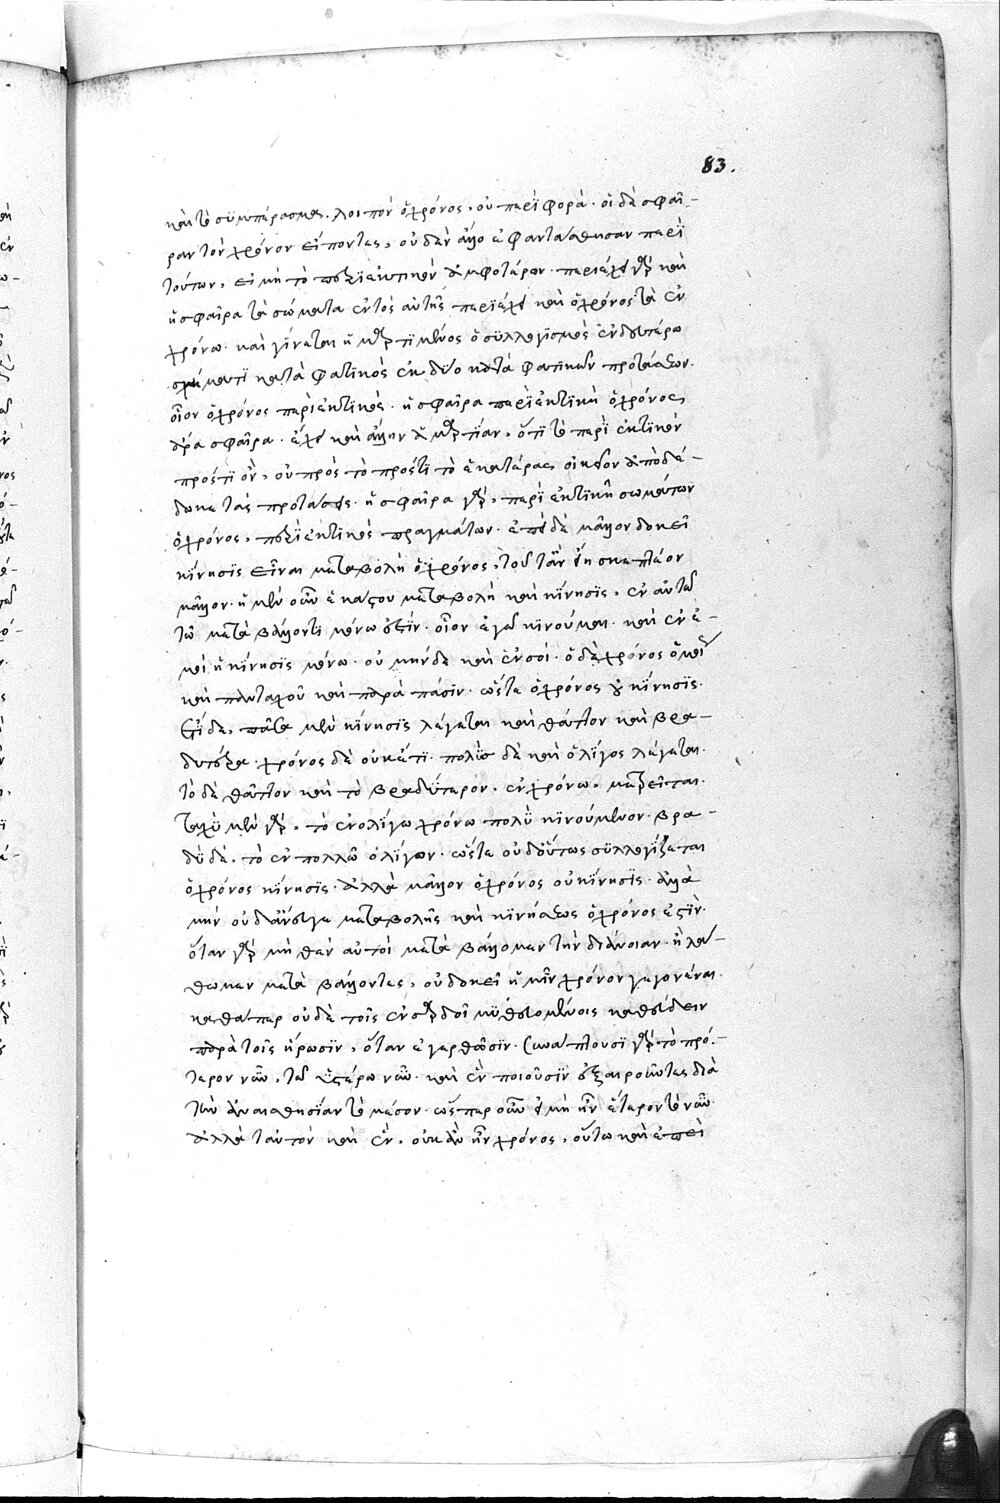 83.
καὶ τὸ συμπέρασμα. λοιπὸν ὁ χρόνος, οὐ περιφορά. οἱ δὲ σφαῖ-
ραν τὸν χρόνον εἰπόντες, οὐδὲν ἄλλο ἐφαντάσθησαν περὶ
τούτων, εἰ μὴ τὸ περιεκτικὸν ἀμφοτέρων. περιέχει γὰρ καὶ
ἡ σφαῖρα τὰ σώματα ἐντὸς αὐτῆς περιέχει καὶ ὁ χρόνος τὰ ἐν
χρόνω. καὶ γίνεται ἡμαρτημένος ὁ συλλογισμὸς ἐν δευτέρω
σχήματι καταφατικὸς ἐκ δύο καταφατικῶν προτάσεων.
οἷον ὁ χρόνος περιεκτικός. ἡ σφαῖρα περιεκτική ὁ χρόνος
ἄρα σφαῖρα. ἔχει καὶ ἄλλην ἁμαρτίαν, ὅτι τὸ περιεκτικὸν
πρόστι ὂν, οὐ πρὸς τὸ πρόστι τὸ ἑκατέρας οἰκεῖον ἀποδέ-
δωκε τὰς προτάσεις. ἡ σφαῖρα γὰρ, περιεκτικὴ σωμάτων
ὁ χρόνος, περιεκτικὸς πραγμάτων. ἐπεὶ δὲ μᾶλλον δοκεῖ
κίνησις εἶναι μεταβολὴ ὁ χρόνος, τοῦτ' ἂν εἴη σκεπτέον
μᾶλλον. ἡ μὲν οὖν ἑκάστου μεταβολὴ καὶ κίνησις, ἐν αὐτῶ
τῶ μεταβάλλοντι μόνω ἐστίν. οἷον ἐγὼ κινοῦμαι. καὶ ἐν ἐ-
μοὶ ἡ κίνησις μόνω. οὐ μὴν δὲ καὶ ἐν σοί. ὁ δὲ χρόνος ὁμοῦ
καὶ πανταχοῦ καὶ παρὰ πᾶσιν. ὥστε ὁ χρόνος οὐ κίνησις.
ἔτι δὲ, πᾶσα μὲν κίνησις λέγεται καὶ θᾶττον καὶ βρα-
δυτέρα. χρόνος δὲ οὐκέτι. πολὺς δὲ καὶ ὀλίγος λέγεται.
τὸ δὲ θᾶττον καὶ τὸ βραδύτερον, ἐν χρόνω, μετρεῖται.
ταχὺ μὲν γὰρ, τὸ ἐν ὀλίγω χρόνω πολὺ κινούμενον. βρα-
δὺ δὲ, τὸ ἐν πολλῶ ὀλίγον. ὥστε οὐδ' οὕτως συλλογίζεται
ὁ χρόνος κίνησις. ἀλλὰ μᾶλλον ὁ χρόνος οὐ κίνησις. ἀλλὰ
μὴν οὐδ' ἄνευγε μεταβολῆς καὶ κινήσεως ὁ χρόνος ἐστίν.
ὅταν γὰρ μηθὲν αὐτοὶ μεταβάλλομεν τὴν διάνοιαν. ἢ λά-
θωμεν μεταβάλλοντες, οὐ δοκεῖ ἡμῖν χρόνον γεγονέναι.
καθάπερ οὐδὲ τοῖς ἐν σαρδοῖ μυθευομένοις καθεύδειν
παρὰ τοῖς ἥρωσιν, ὅταν ἐγερθῶσιν. συνάπτουσι γὰρ τὸ πρό-
τερον νῦν, τῶ ὑστέρω νῦν. καὶ ἓν ποιοῦσιν ἐξαιροῦντες διὰ
τὴν ἀναισθησίαν τὸ μέσον. ὥσπερ οὖν εἰ μὴ ἦν ἕτερον τὸ νῦν.
ἀλλὰ ταυτὸν καὶ ἓν, οὐκ ἂν ἦν χρόνος, οὕτω καὶ ἐπεὶ